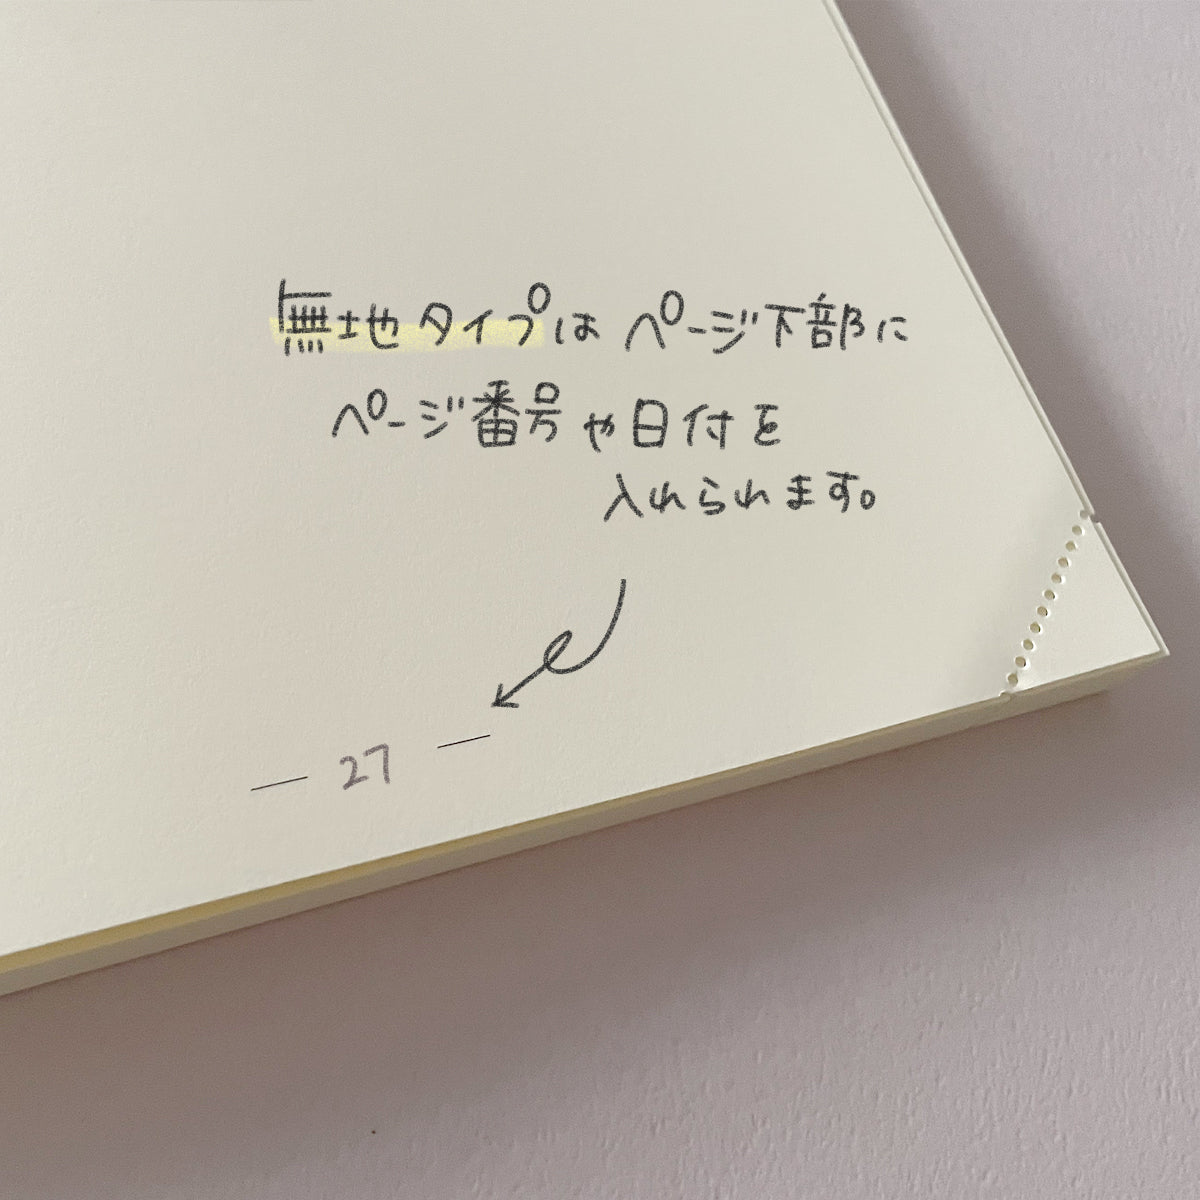 無地タイプはページ下部に
ページ番号や日付を
入れられます。
— 27 —